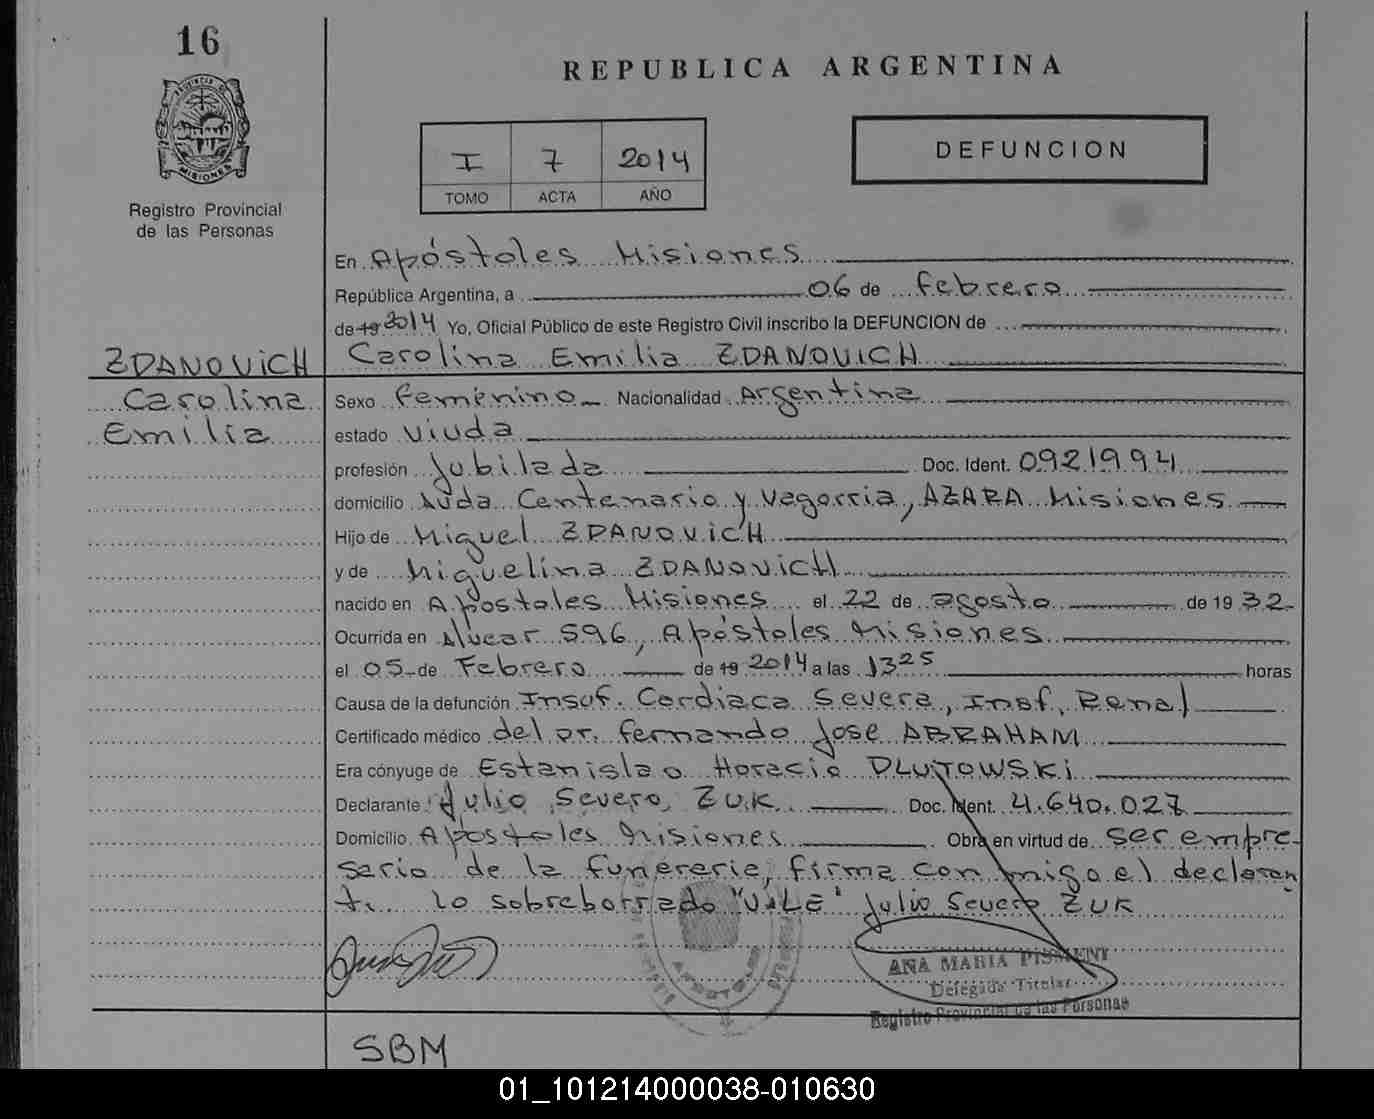 16
PROVINCIA DE
MISIONES
Registro Provincial
de las Personas
REPUBLICA ARGENTINA
I 7 2014
TOMO ACTA AÑO
DEFUNCION
En Apóstoles Misiones
República Argentina, a 06 de febrero
de 19 2014 Yo, Oficial Público de este Registro Civil inscribo la DEFUNCION de
ZDANOVICH Carolina Emilia ZDANOVICH
Carolina Sexo femenino Nacionalidad Argentina
Emilia estado viuda
profesión Jubilada Doc. Ident. 0921994
domicilio Avda Centenario y Vagorria, AZARA Misiones
Hijo de Miguel ZDANOVICH
y de Miguelina ZDANOVICH
nacido en Apostoles Misiones el 22 de agosto de 19 32
Ocurrida en Alvear 596, Apóstoles Misiones
el 05 de Febrero de 19 2014 a las 13 25 horas
Causa de la defunción Insuf. Cardiaca Severa, Insf. Renal
Certificado médico del Dr. fernando Jose ABRAHAM
Era cónyuge de Estanislao Horacio DLUTOWSKi
Declarante Julio Severo ZUK Doc. Ident. 4.640.027
Domicilio Apostoles Misiones Obra en virtud de ser empre-
sario de la funererie, firma conmigo el declaran
t. lo sobreborrado "V.LE" Julio Severo ZUK
ANA MARIA
Delegada Titular
Registro Provincial de las Personas
APOSTOLES
SBM
01_101214000038-010630